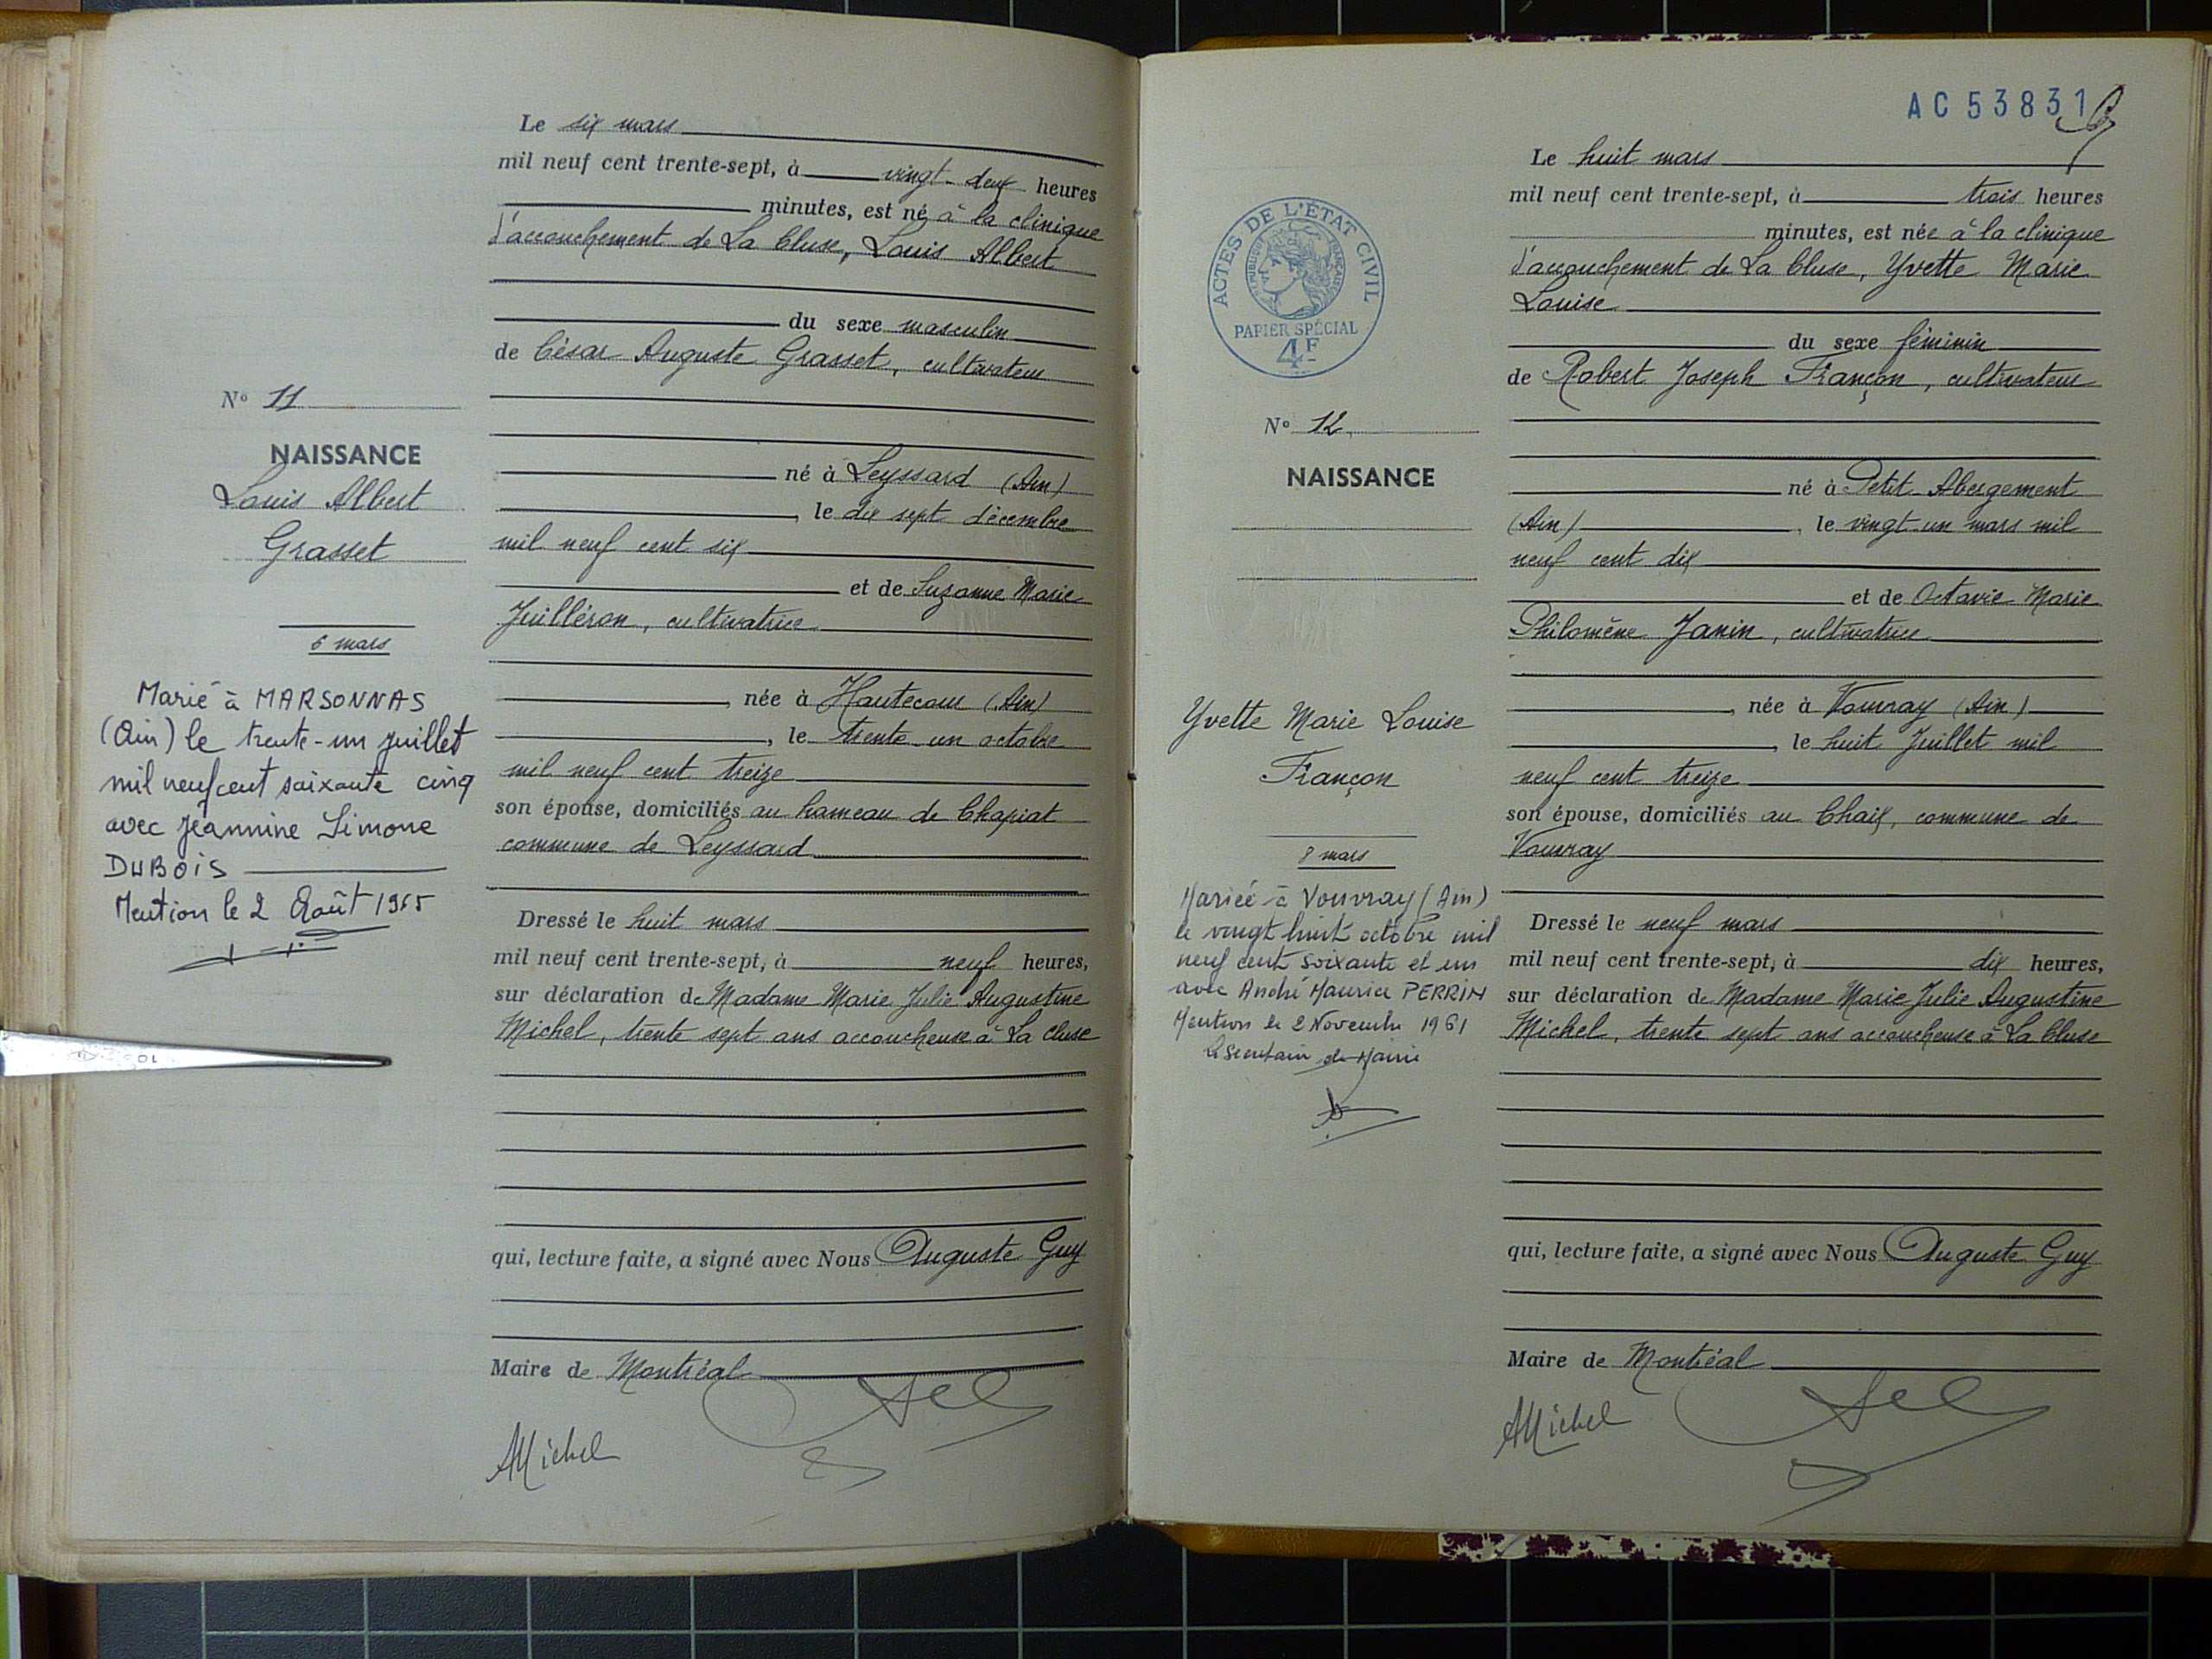 Le six mars
mil neuf cent trente-sept, à vingt-deux heures
minutes, est né à la clinique
d'accouchement de La Cluse, Louis Albert
du sexe masculin
de César Auguste Grasset, cultivateur
né à Leyssard (Ain)
, le dix sept décembre
mil neuf cent six
et de Suzanne Marie
Juilléron, cultivatrice
, née à Hautecour (Ain)
, le trente-un octobre
mil neuf cent treize
son épouse, domiciliés au hameau de Chapiat
commune de Leyssard
Dressé le huit mars
mil neuf cent trente-sept, à neuf heures,
sur déclaration de Madame Marie Julie Augustine
Michel, trente sept ans accoucheuse à La Cluse
qui, lecture faite, a signé avec Nous Auguste Guy
Maire de Montréal
AMichel
N° 11
NAISSANCE
Louis Albert
Grasset
6 mars
Marié à MARSONNAS
(Ain) le trente-un juillet
mil neuf cent soixante cinq
avec Jeannine Simone
DUBOIS
Mention le 2 Août 1965
AC 53831
Le huit mars
mil neuf cent trente-sept, à trois heures
minutes, est née à la clinique
d'accouchement de La Cluse, Yvette Marie
Louise
du sexe féminin
de Robert Joseph Françon, cultivateur
né à Petit-Abergement
(Ain), le vingt-un mars mil
neuf cent dix
et de Octavie Marie
Philomène Janin, cultivatrice
, née à Vouvray (Ain)
, le huit Juillet mil
neuf cent treize
son épouse, domiciliés au Chaix, commune de
Vouvray
Dressé le neuf mars
mil neuf cent trente-sept, à dix heures,
sur déclaration de Madame Marie Julie Augustine
Michel, trente sept ans accoucheuse à La Cluse
qui, lecture faite, a signé avec Nous Auguste Guy
Maire de Montréal
AMichel
ACTES DE L'ÉTAT CIVIL
RÉPUBLIQUE FRANÇAISE
PAPIER SPÉCIAL
4F
N° 12
NAISSANCE
Yvette Marie Louise
Françon
8 mars
Mariée à Vouvray (Ain)
le vingt huit octobre mil
neuf cent soixante et un
avec André Maurice PERRIN
Mention le 2 Novembre 1961
Le Secrétaire de Mairie